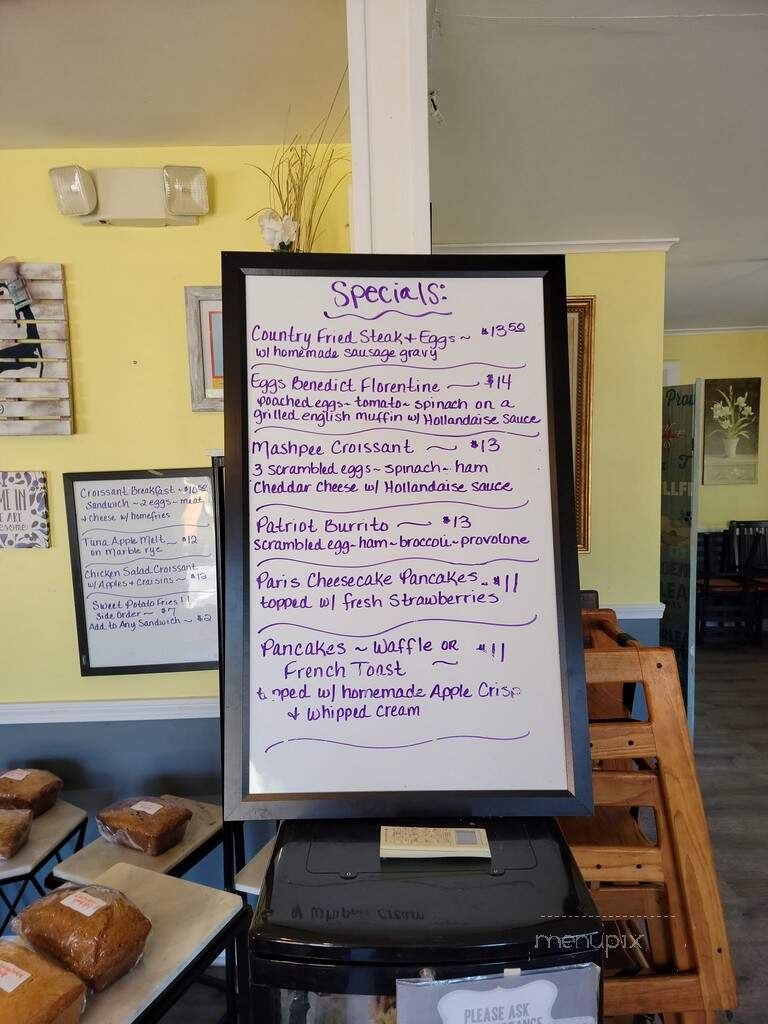 Specials:
Country Fried Steak + Eggs ~ $13.50
w/ homemade sausage gravy
Eggs Benedict Florentine ~ $14
poached eggs ~ tomato ~ spinach on a
grilled english muffin w/ Hollandaise Sauce
Mashpee Croissant ~ $13
3 scrambled eggs ~ spinach ~ ham
Cheddar Cheese w/ Hollandaise sauce
Patriot Burrito ~ $13
scrambled egg ~ ham ~ broccoli ~ provolone
Paris Cheesecake Pancakes ~ $11
topped w/ fresh Strawberries
Pancakes ~ Waffle OR ~ $11
French Toast
topped w/ homemade Apple Crisp
& Whipped Cream
Croissant Breakfast ~ $10.50
Sandwich ~ 2 eggs ~ meat
+ cheese w/ homefries
Tuna Apple Melt ~ $12
on Marble rye
Chicken Salad Croissant
w/ Apples + Craisins ~ $12
Sweet Potato Fries!!
Side Order ~ $7
Add to Any Sandwich ~ $2
ME IN
ARE
menupix
PLEASE ASK